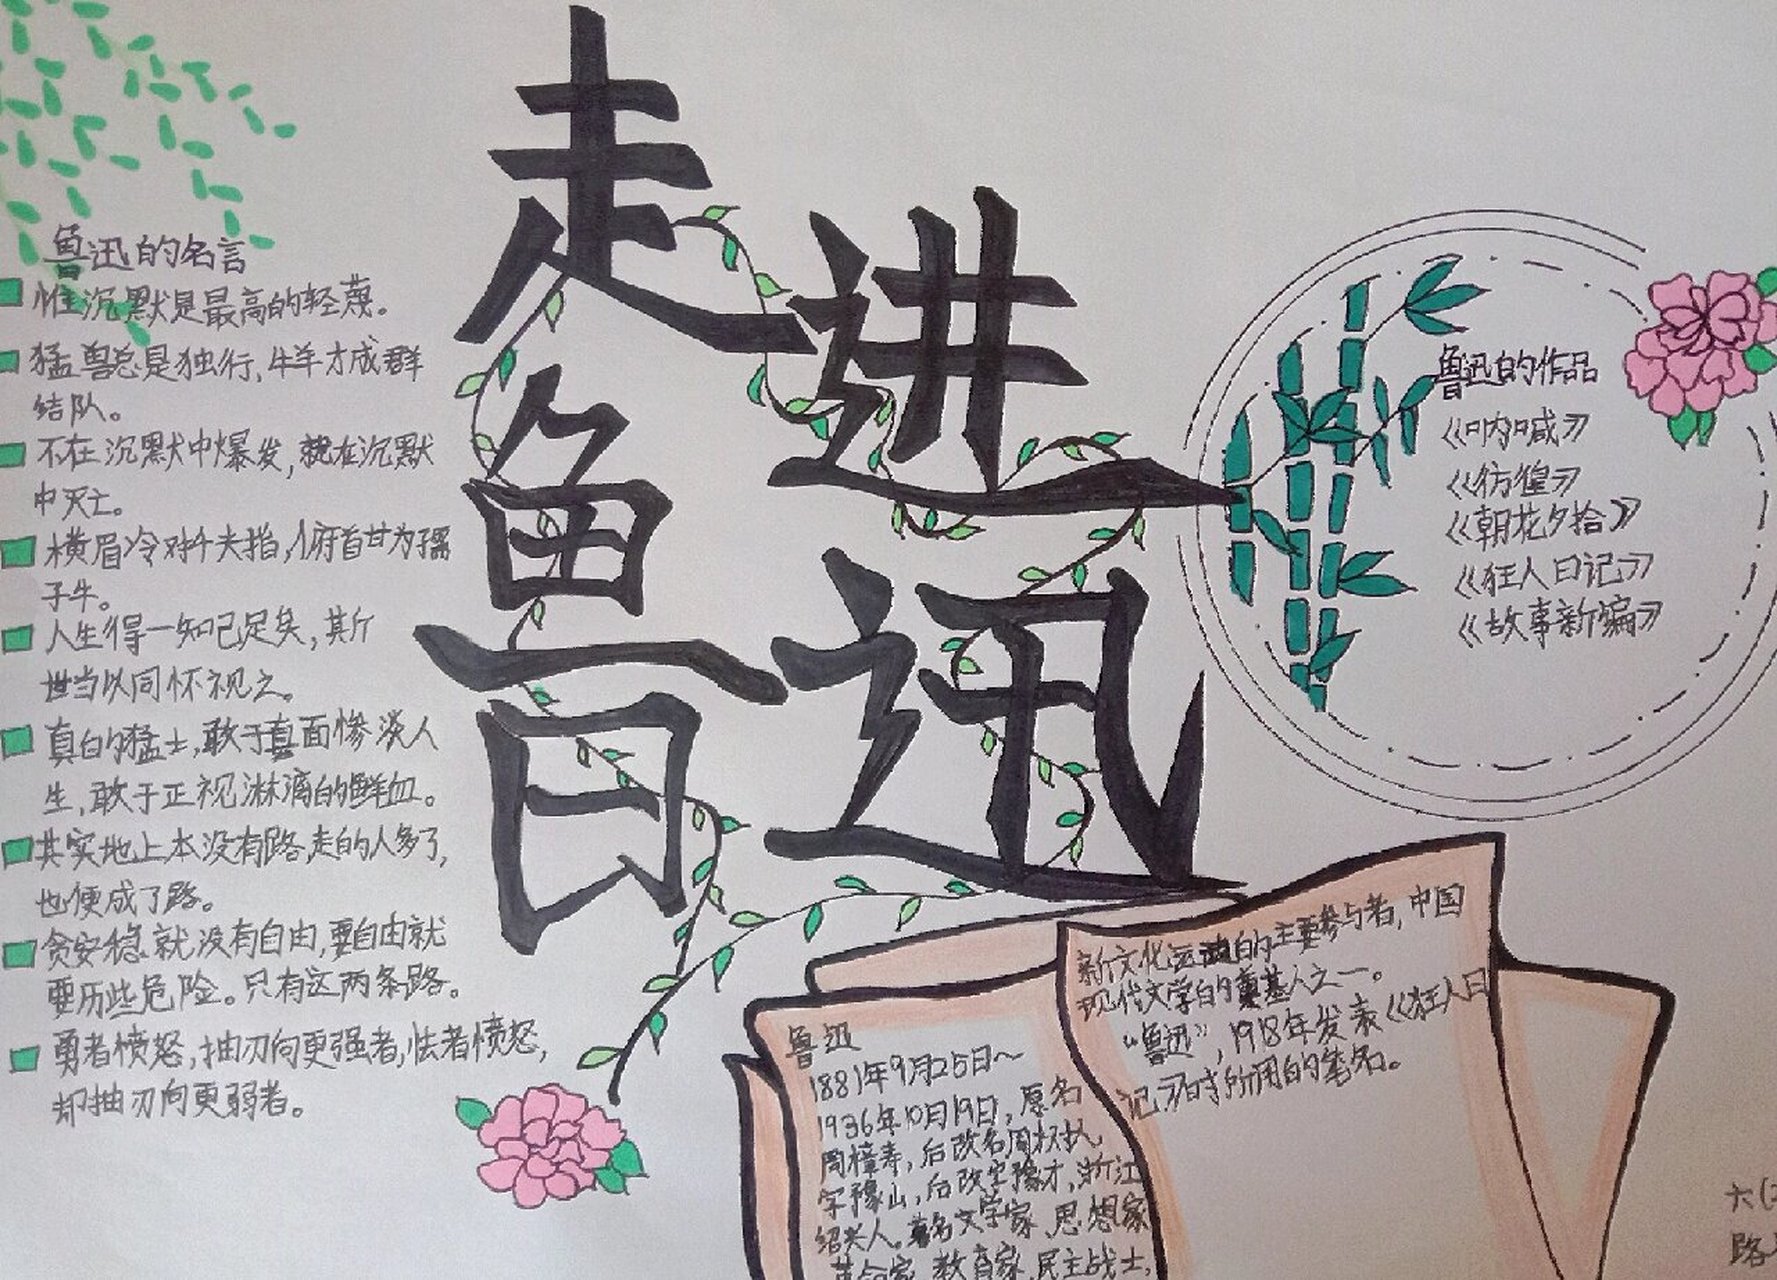 走进
鲁迅
鲁迅的名言
惟沉默是最高的轻蔑。
猛兽总是独行,牛羊才成群
结队。
不在沉默中爆发,就在沉默
中灭亡。
横眉冷对千夫指,俯首甘为孺
子牛。
人生得一知己足矣,斯
世当以同怀视之。
真的猛士,敢于直面惨淡人
生,敢于正视淋漓的鲜血。
其实地上本没有路,走的人多了,
也便成了路。
贪安稳就没有自由,要自由就
要历些危险。只有这两条路。
勇者愤怒,抽刃向更强者,怯者愤怒,
却抽刃向更弱者。
鲁迅的作品
《呐喊》
《彷徨》
《朝花夕拾》
《狂人日记》
《故事新编》
鲁迅
1881年9月25日~
1936年10月19日,原名
周樟寿,后改名周树人,
字豫山,后改字豫才,浙江
绍兴人。著名文学家、思想家
革命家、教育家、民主战士,
新文化运动的主要参与者,中国
现代文学的奠基人之一。
“鲁迅”,1918年发表《狂人日
记》时所用的笔名。
六(
路